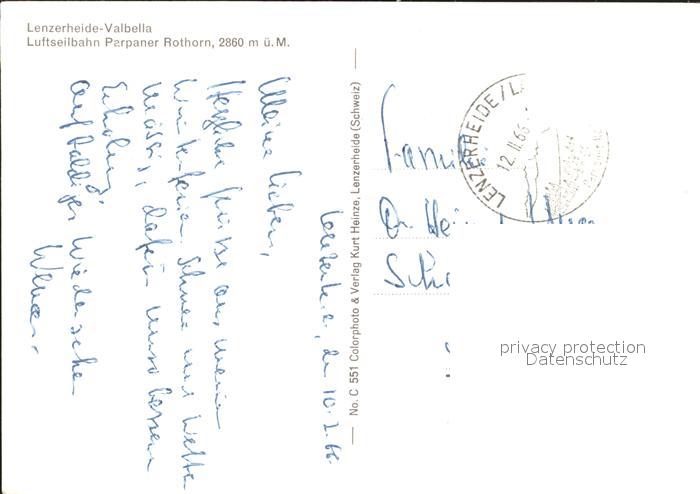 Lenzerheide-Valbella
Luftseilbahn Parpaner Rothorn, 2860 m ü. M.
Lenzerheide, den 10.2.66.
Meine Lieben,
Herzliche Grüsse aus meinen
Winterferien. Schnee und Wetter
mässig, dafür umso bessere
Erholung.
Auf baldiges Wiedersehen
Werner.
No. C 551 Colorphoto & Verlag Kurt Heinze, Lenzerheide (Schweiz)
LENZERHEIDE/L
12.II.66
Fami
Dr. He
privacy protection
Datenschutz